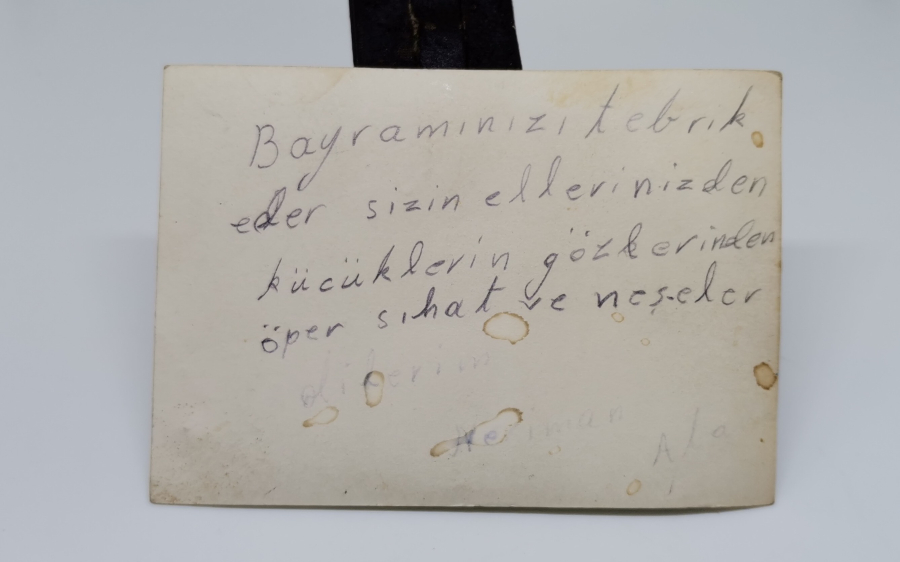 Bayramınızı tebrik
eder sizin ellerinizden
kücüklerin gözlerinden
öper sıhat ve neşeler
dilerim
Neriman